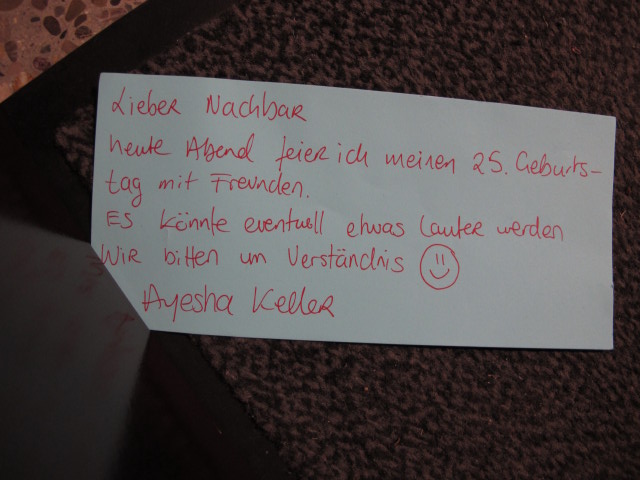 Lieber Nachbar
heute Abend feier ich meinen 25. Geburts-
tag mit Freunden.
Es könnte eventuell etwas lauter werden
Wir bitten um Verständnis
Ayesha Keller